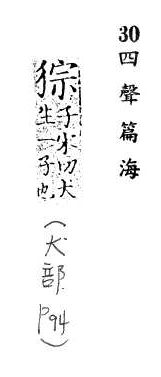 30四聲篇海
猔子宋切犬
生一子也
(犬部P94)